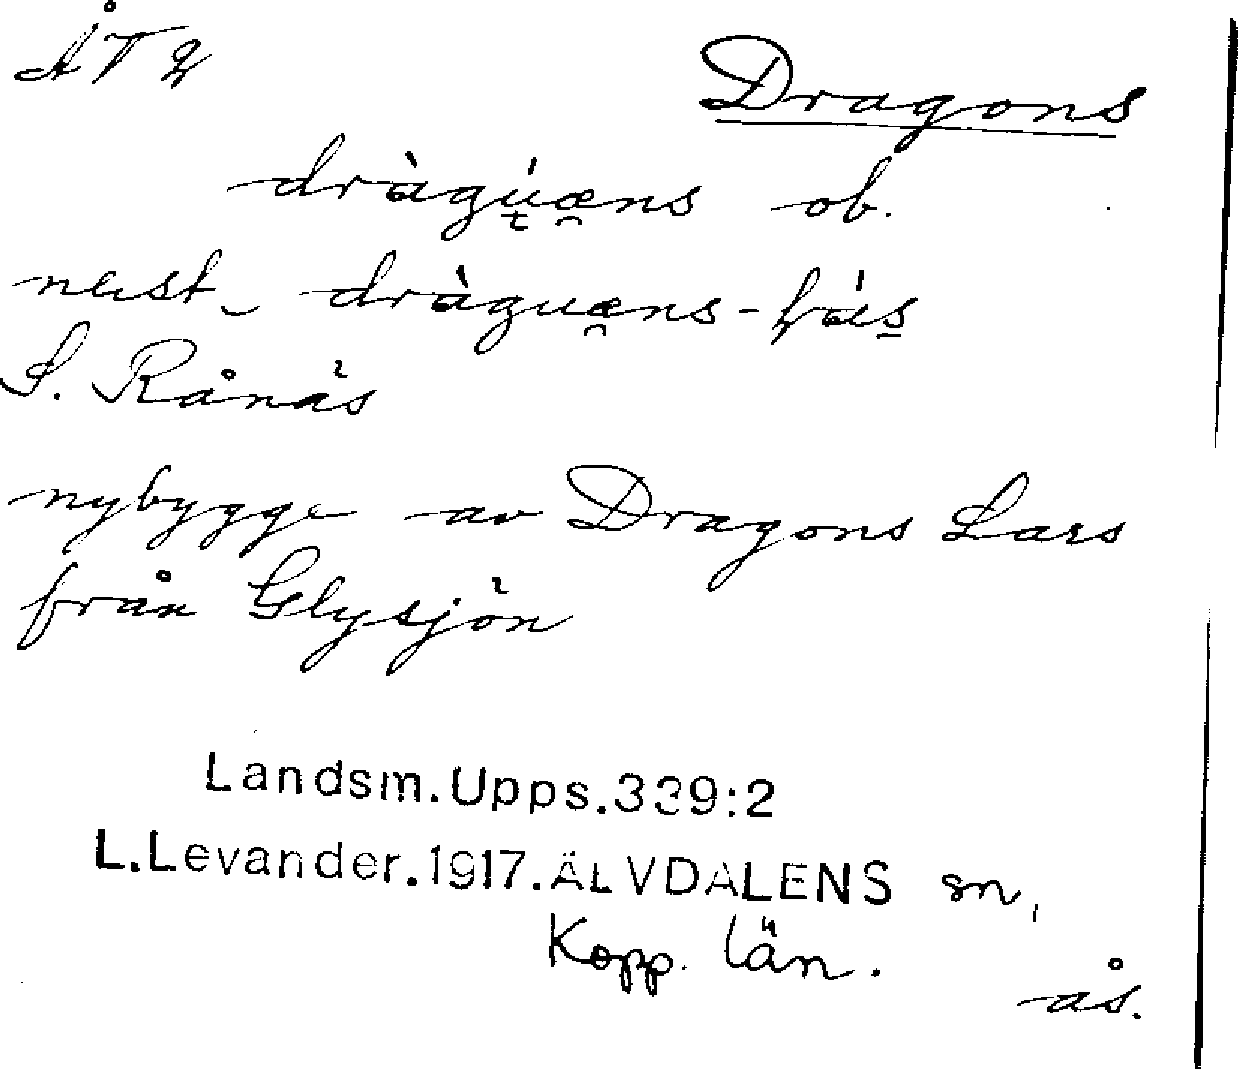 ÅT
Dragons
dràgu̯æ̯ns ob.
dràguæ̯ns-
S. Rånäs
nybygge av Dragons Lars
från Glysjön
Landsm.Upps.339:2
L.Levander.1917.ÄLVDALENS sn,
Kopp. län.
ås.